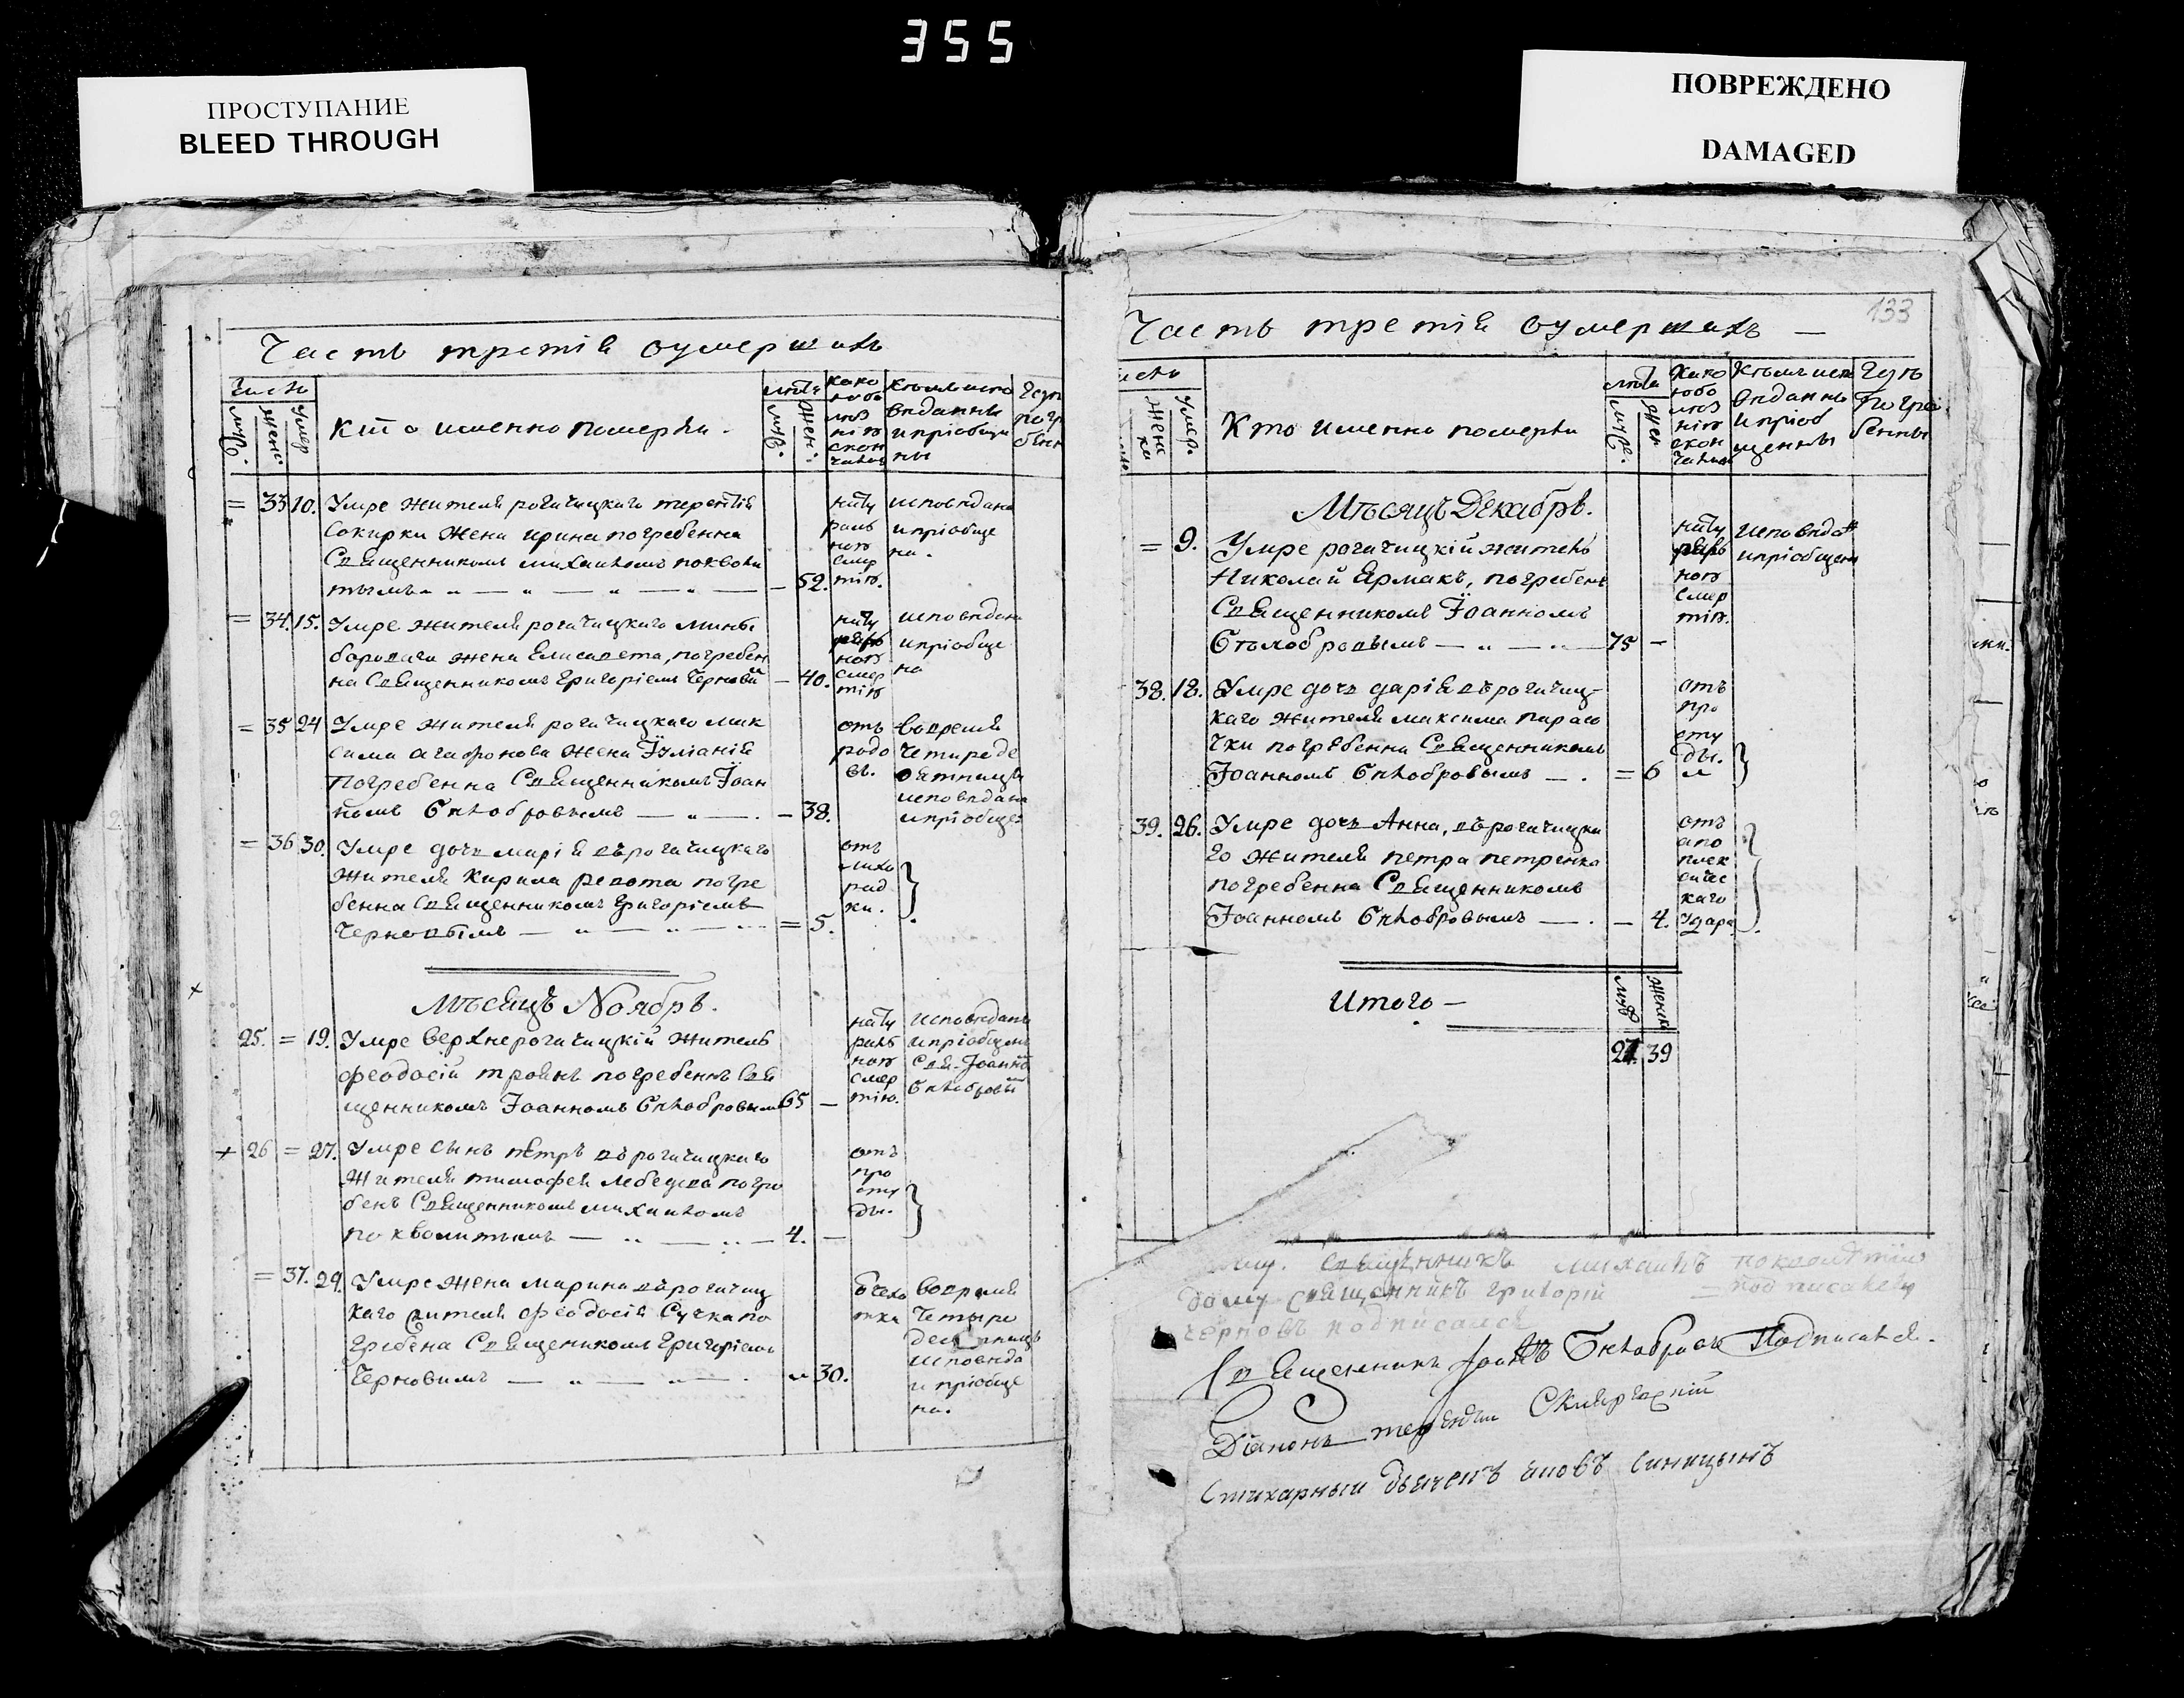 355
ПРОСТУПАНИЕ
BLEED THROUGH
ПОВРЕЖДЕНО
DAMAGED
Часть третія оумершихъ
Число
лѣта
како
кто именно померли.
= 33 10. Умре жителя рогачицкаго терентія
Сокирки жена ирина погребенна
Священникомъ михаиломъ поквали
тымъ — 52.
нату
раль
ною
смер
тію.
исповѣдана
и пріобще
на.
= 34. 15. Умре жителя рогачицкаго мины
бородаги жена Елисавета, погребен
на Священникомъ Григоріемъ Чернови — 40.
нату
раль
ною
смер
тію
исповѣдана
и пріобще
на
= 35 24 Умре жителя рогачицкаго мак
сима агафонова жена Іуліанія
погребенна Священникомъ Іоан
номъ Бѣлобровымъ — 38.
отъ
родо
въ.
вовремя
четыреде
сятницы
исповѣдана
и пріобщен
= 36 30. Умре дочь марія вѣрогачицкаго
жителя Кирила ревота погре
бенна Священникомъ Григоріемъ
Черновымъ = 5.
отъ
лихо
рад
ки.
Мѣсяцъ Ноябрь.
25. = 19. Умре верхнерогачицкій житель
феодосій троянъ погребенъ Свя
щенникомъ Іоанномъ Бѣлобровым 65 —
нату
раль
ною
смер
тію.
исповѣданъ
и пріобщенъ
+ 26 = 27. Умре сынъ петръ вѣрогачицкаго
жителя тимофея лебедева погре
бенъ Священникомъ михаиломъ
поквалитымъ — 4. —
отъ
про
сту
ды.
= 37. 29. Умре жена марина вѣрогачиц
каго жителя феодосія Сучка по
гребена Священикомъ Григоріемъ
Черновимъ 30.
вовремя
четыре
исповѣда
и пріобще
на.
133
Часть третія оумершихъ —
Кто именно померли
Мѣсяцъ Декабрь.
= 9. Умре рогачицкій житель
Николай Ермакъ, погребенъ
Священникомъ Іоанномъ
Бѣлобровымъ — 75 —
нату
раль
ною
смер
тію.
исповѣда
и пріобщенъ
38. 18. Умре дочь дарія вѣрогачиц-
каго жителя максима парасо
чки погребенна Священникомъ
Іоанномъ Бѣлобровымъ — . = 6
отъ
про
сту
ды.
39. 26. Умре дочь Анна, вѣрогачицка
го жителя петра петренка
погребенна Священникомъ
Іоанномъ Бѣлобровымъ — . — 4.
отъ
апо
плек
сичес
каго
удара.
Итого —
27. 39
Священникъ михаилъ
Священникъ григорій
черновъ подписался
Священникъ Іоаннъ Бѣлобровъ Подписался.
Діаконъ терентий
Стихарный дьячекъ Синицынъ